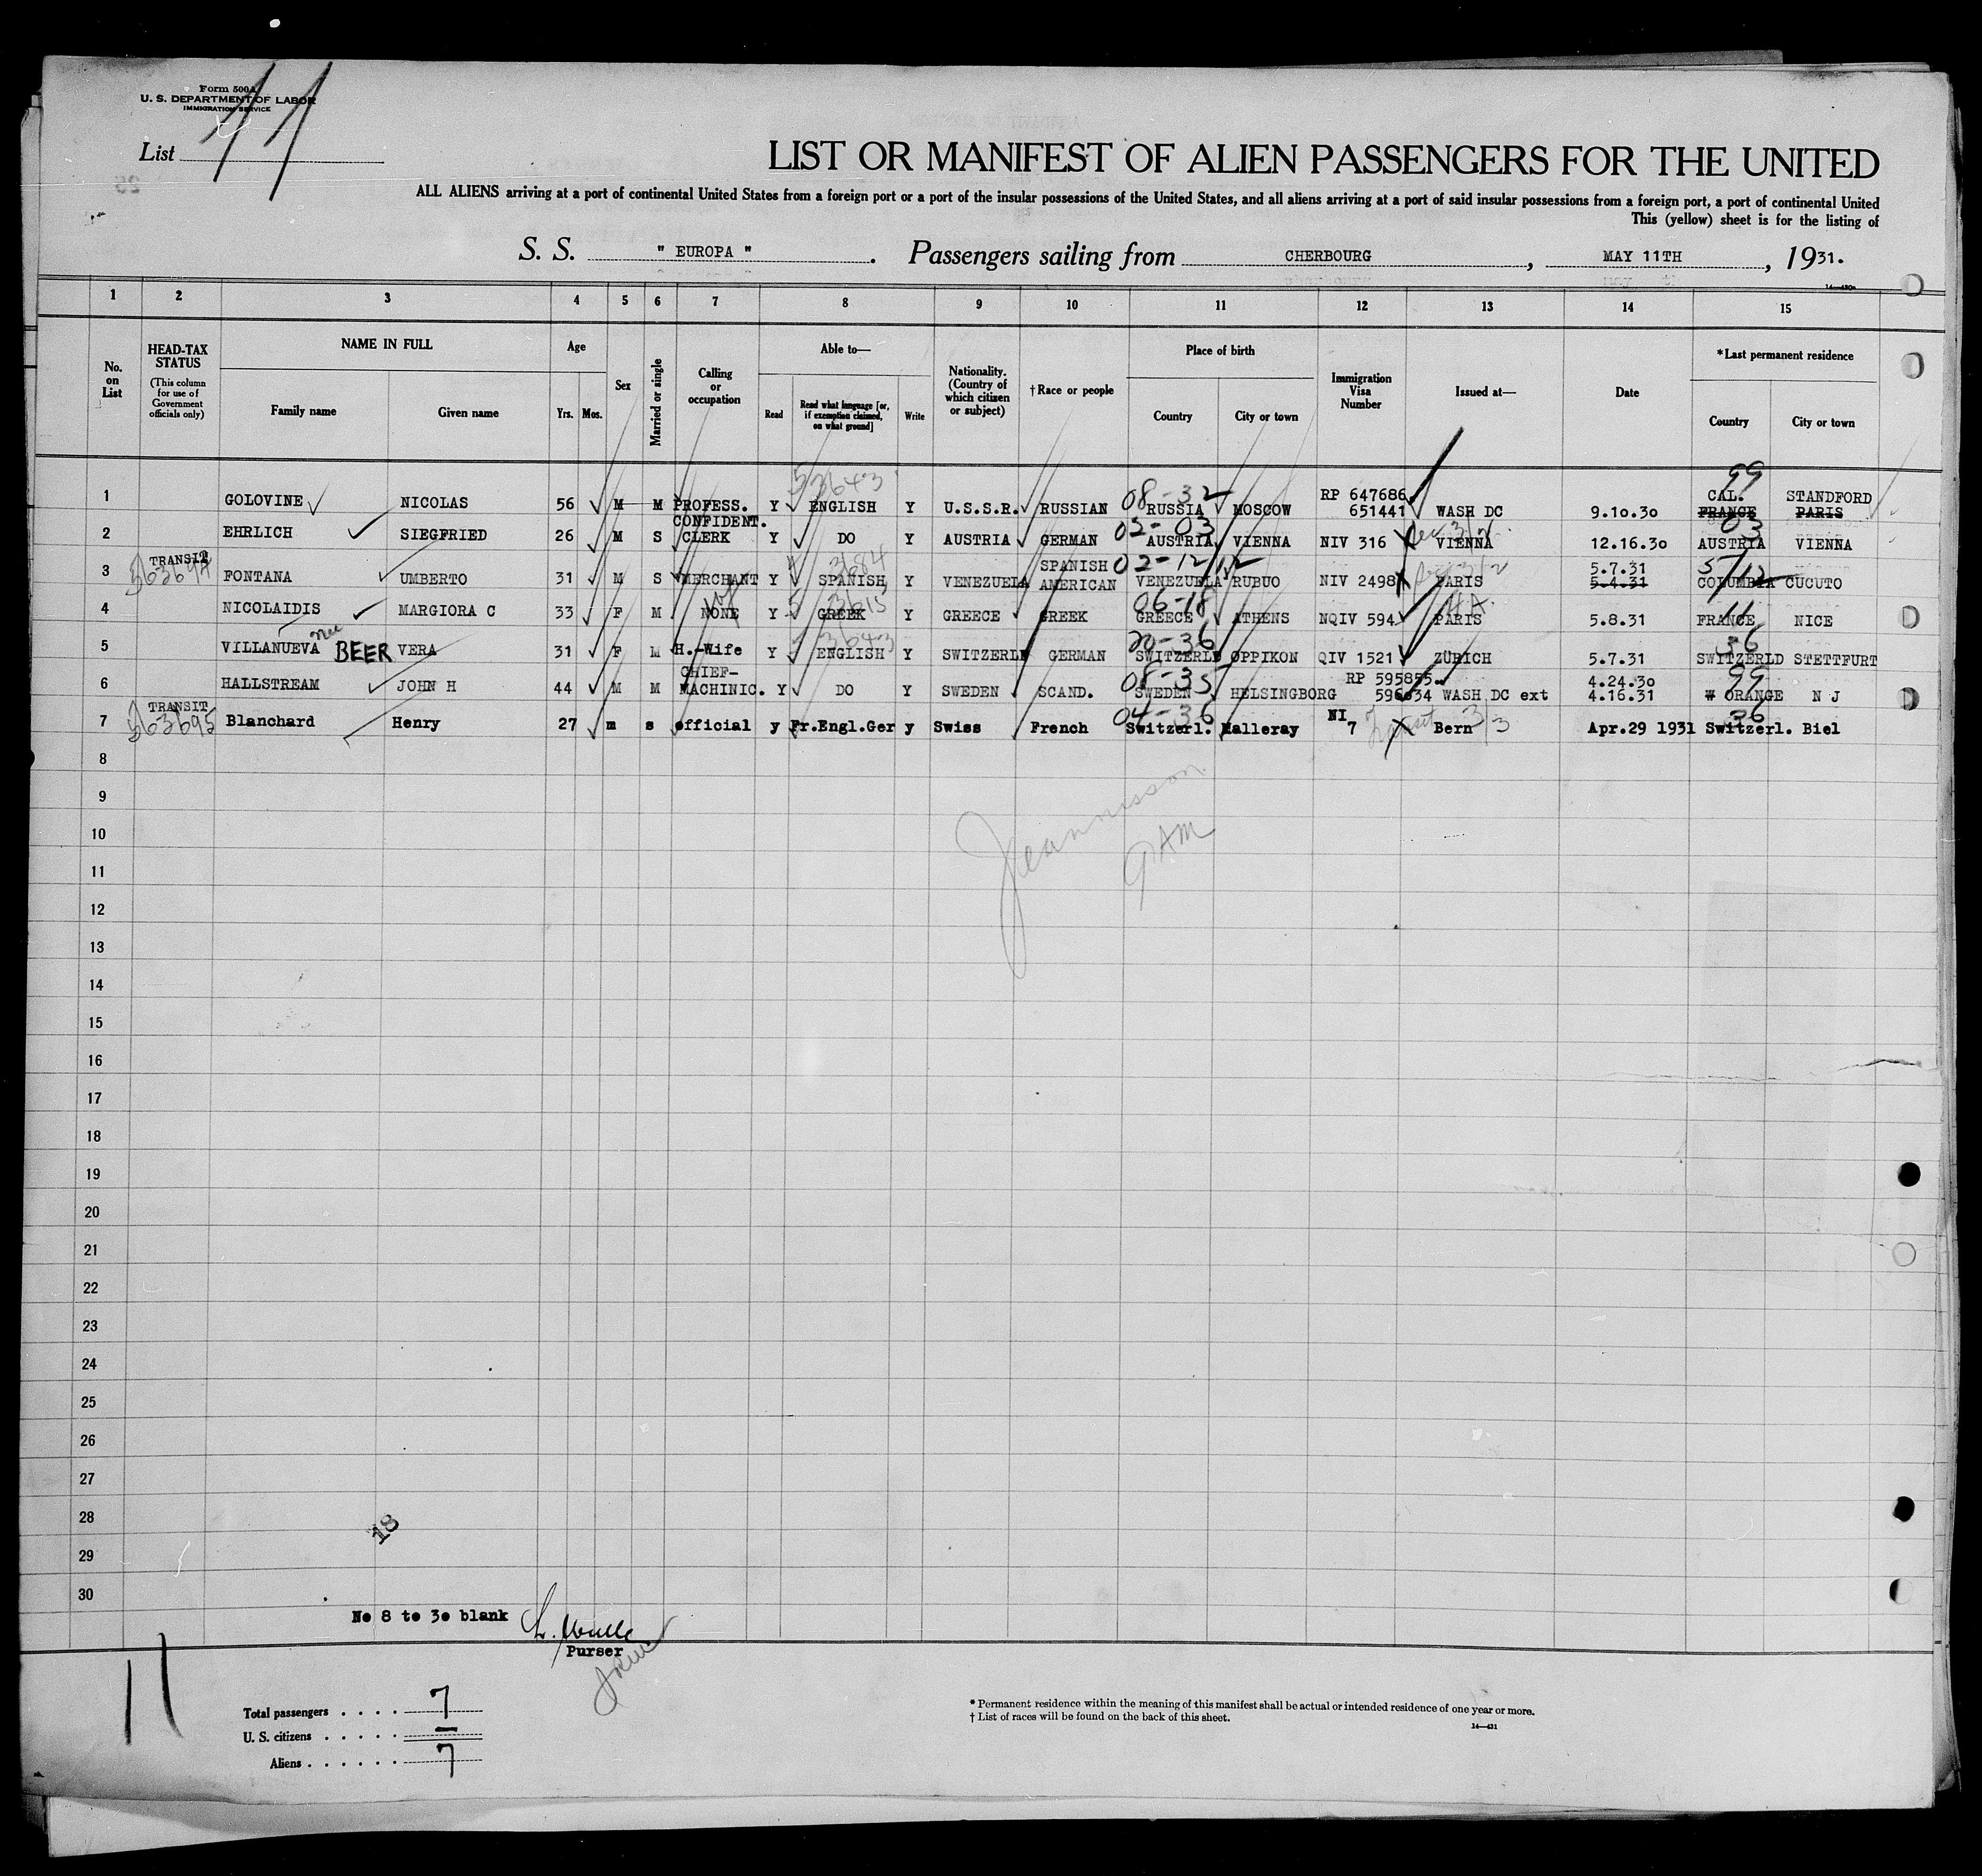 Form 500A
U. S. DEPARTMENT OF LABOR
IMMIGRATION SERVICE
List 11
LIST OR MANIFEST OF ALIEN PASSENGERS FOR THE UNITED
ALL ALIENS arriving at a port of continental United States from a foreign port or a port of the insular possessions of the United States, and all aliens arriving at a port of said insular possessions from a foreign port, a port of continental United
This (yellow) sheet is for the listing of
S. S. " EUROPA ". Passengers sailing from CHERBOURG, MAY 11TH, 1931.
1 2 3 4 5 6 7 8 9 10 11 12 13 14 15
No. on List
HEAD-TAX STATUS (This column for use of Government officials only)
NAME IN FULL Family name Given name
Age Yrs. Mos.
Sex
Married or single
Calling or occupation
Able to— Read Read what language [or, if exemption claimed, on what ground] Write
Nationality. (Country of which citizen or subject)
†Race or people
Place of birth Country City or town
Immigration Visa Number
Issued at—
Date
*Last permanent residence Country City or town
53643 99
08-32 RP 647686 CAL. STANDFORD
1 GOLOVINE NICOLAS 56 M M PROFESS. Y ENGLISH Y U.S.S.R. RUSSIAN RUSSIA MOSCOW 651441 WASH DC 9.10.30 FRANCE PARIS
CONFIDENT. 03-03 03
2 EHRLICH SIEGFRIED 26 M S CLERK Y DO Y AUSTRIA GERMAN AUSTRIA VIENNA NIV 316 VIENNA 12.16.30 AUSTRIA VIENNA
TRANSIT SPANISH 02-12/12 5.7.31 57/12
3 FONTANA UMBERTO 31 M S MERCHANT Y SPANISH Y VENEZUELA AMERICAN VENEZUELA RUBUO NIV 2498 PARIS 5.4.31 COLUMBIA CUCUTO
06-18
4 NICOLAIDIS MARGIORA C 33 F M NONE Y GREEK Y GREECE GREEK GREECE ATHENS NQIV 594 PARIS 5.8.31 FRANCE NICE
20-36 36
5 VILLANUEVA nee BEER VERA 31 F M H.-Wife Y ENGLISH Y SWITZERLD GERMAN SWITZERLD OPPIKON QIV 1521 ZÜRICH 5.7.31 SWITZERLD STETTFURT
CHIEF- 08-35 RP 595855 4.24.30 99
6 HALLSTREAM JOHN H 44 M M MACHINIC. Y DO Y SWEDEN SCAND. SWEDEN HELSINGBORG 596634 WASH DC ext 4.16.31 W ORANGE N J
TRANSIT 04-36 NI 36
7 Blanchard Henry 27 m s official y Fr.Engl.Ger y Swiss French Switzerl. Malleray 7 Bern Apr.29 1931 Switzerl. Biel
8
9
10
11
12
13
14
15
16
17
18
19
20
21
22
23
24
25
26
27
28
29
30
18
No 8 to 30 blank
Purser
11
Total passengers . . . . 7
U. S. citizens . . . . . —
Aliens . . . . . . 7
* Permanent residence within the meaning of this manifest shall be actual or intended residence of one year or more.
† List of races will be found on the back of this sheet.
14—431